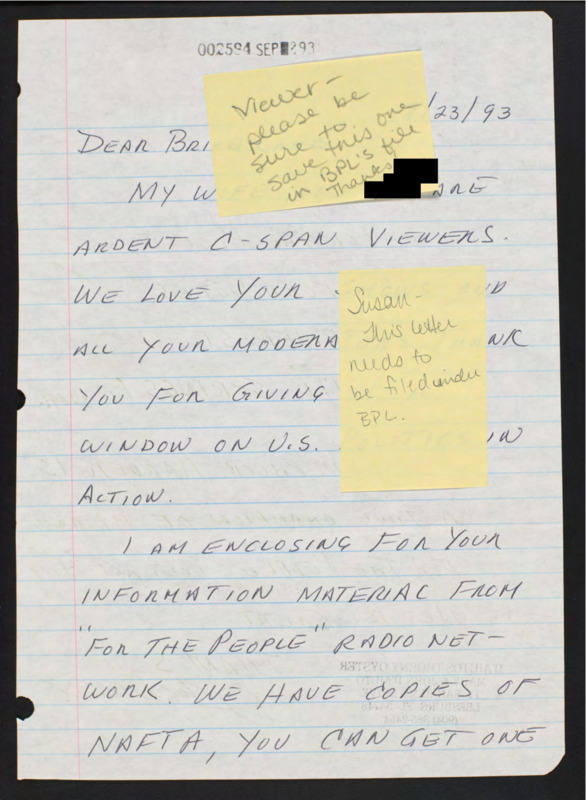 002594 SEP 293
Viewer -
please be
sure to
save this one
in BPL's file
Thanks,
/23/93
DEAR BRI
MY W ARE
ARDENT C-SPAN VIEWERS.
WE LOVE YOUR
ALL YOUR MODERA NK
YOU FOR GIVING
WINDOW ON U.S. POLITICS IN
ACTION.
Susan -
This letter
needs to
be filed under
BPL.
I AM ENCLOSING FOR YOUR
INFORMATION MATERIAL FROM
"FOR THE PEOPLE" RADIO NET-
WORK. WE HAVE COPIES OF
NAFTA, YOU CAN GET ONE